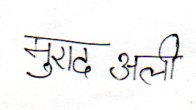 मुराद अली